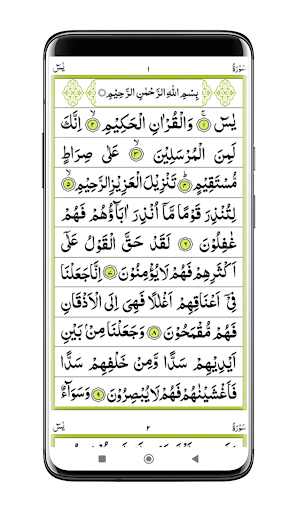 سُوْرَةُ ١ يٰسٓ
بِسْمِ اللّٰهِ الرَّحْمٰنِ الرَّحِيْمِ
يٰسٓ ۝١ وَالْقُرْاٰنِ الْحَكِيْمِ ۝٢ اِنَّكَ
لَمِنَ الْمُرْسَلِيْنَ ۝٣ عَلٰى صِرَاطٍ
مُّسْتَقِيْمٍ ۝٤ تَنْزِيْلَ الْعَزِيْزِ الرَّحِيْمِ ۝٥
لِتُنْذِرَ قَوْمًا مَّاۤ اُنْذِرَ اٰبَآؤُهُمْ فَهُمْ
غٰفِلُوْنَ ۝٦ لَقَدْ حَقَّ الْقَوْلُ عَلٰٓى
اَكْثَرِهِمْ فَهُمْ لَا يُؤْمِنُوْنَ ۝٧ اِنَّا جَعَلْنَا
فِيْٓ اَعْنَاقِهِمْ اَغْلٰلًا فَهِىَ اِلَى الْاَذْقَانِ
فَهُمْ مُّقْمَحُوْنَ ۝٨ وَجَعَلْنَا مِنْۢ بَيْنِ
اَيْدِيْهِمْ سَدًّا وَّمِنْ خَلْفِهِمْ سَدًّا
فَاَغْشَيْنٰهُمْ فَهُمْ لَا يُبْصِرُوْنَ ۝٩ وَسَوَآءٌ
سُوْرَةُ ٢ يٰسٓ